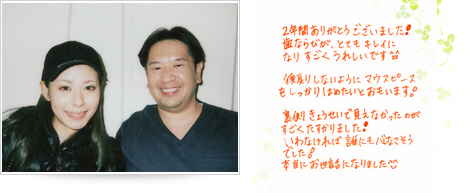 2年間ありがとうございました!
歯ならびが、とても キレイに
なり すごくうれしいです
後戻りしないように マウスピース
をしっかりはめたいとおもいます。
裏側きょうせいで見えなかったのが
すごくたすかりました!
いわなければ 誰にもバレなさそう
でした!
本当にお世話になりました